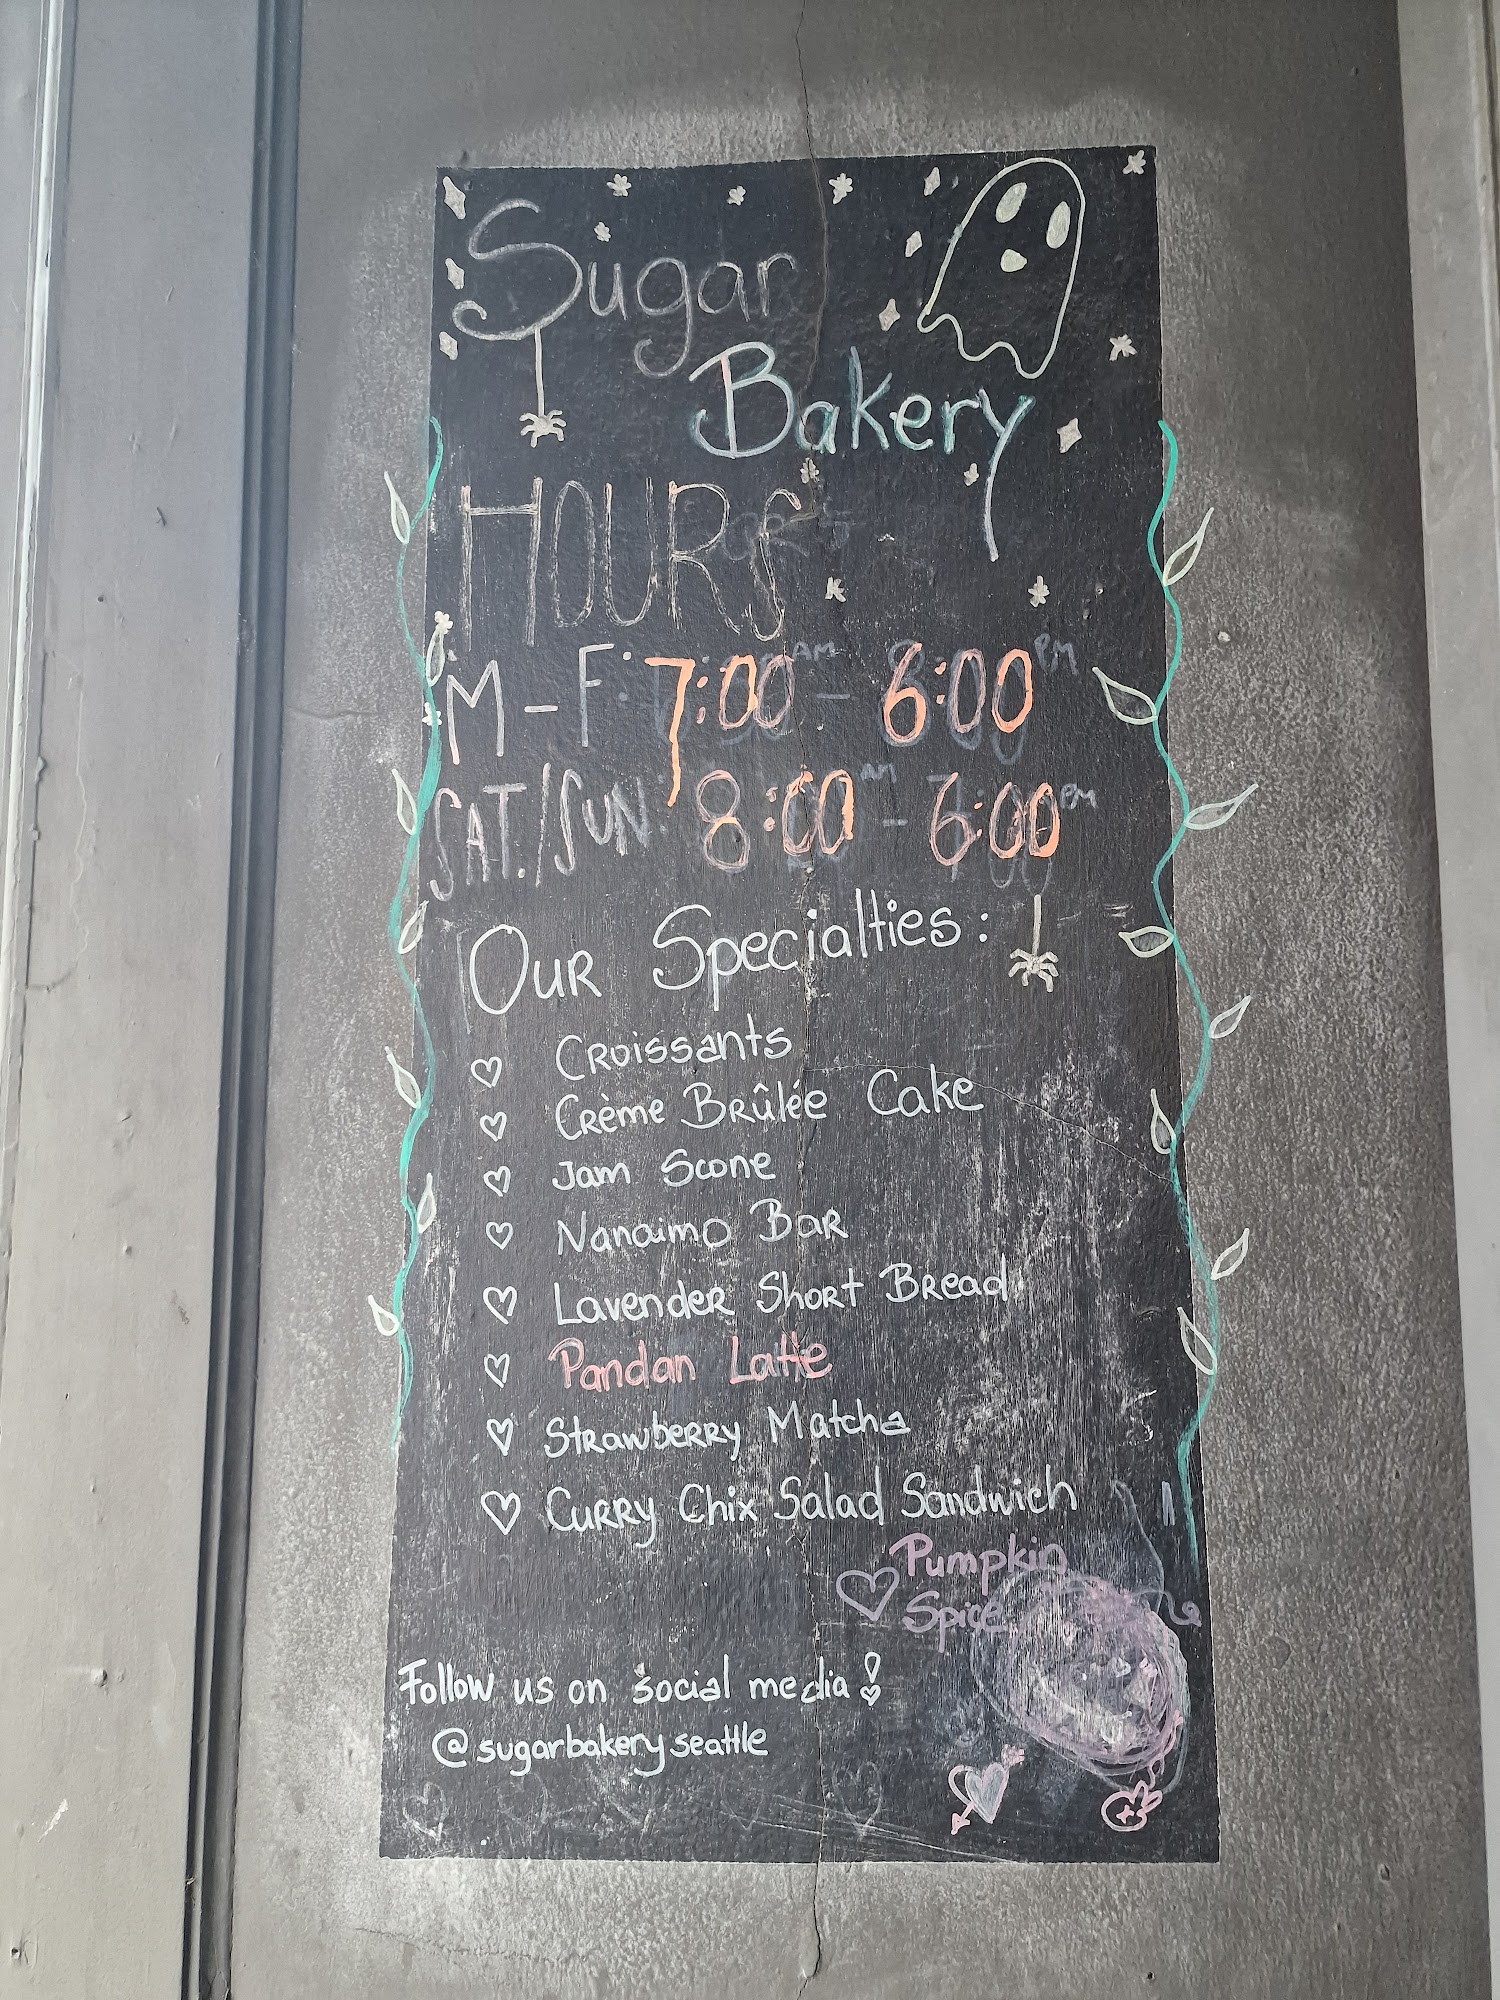 Sugar
Bakery
HOURS
M - F: 7:00 AM - 6:00 PM
SAT./SUN: 8:00 AM - 6:00 PM
Our Specialties:
Croissants
Crème Brûlée Cake
Jam Scone
Nanaimo Bar
Lavender Short Bread
Pandan Latte
Strawberry Matcha
Curry Chix Salad Sandwich
Pumpkin
Spice
Follow us on social media!
@sugarbakeryseattle